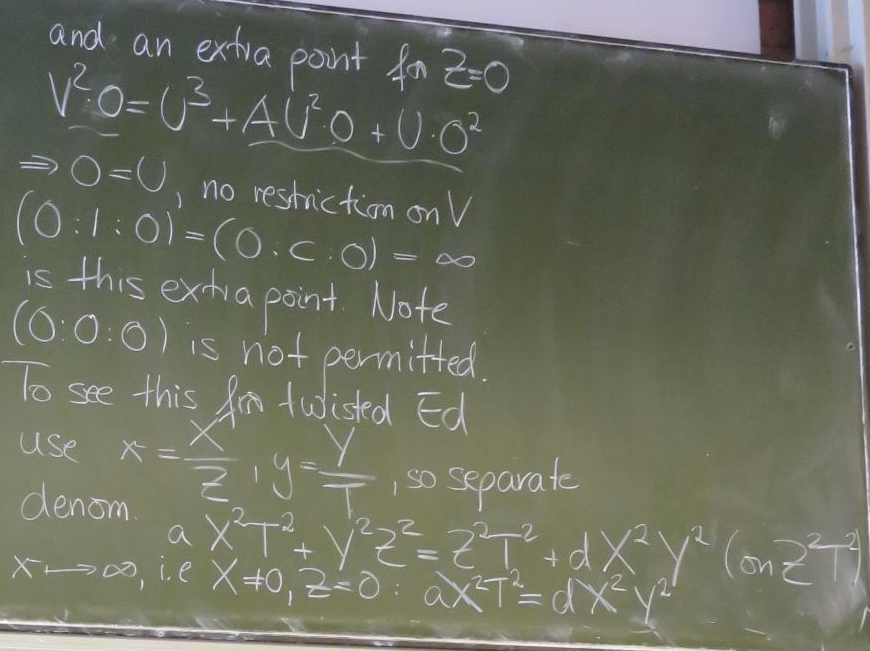 and an extra point for Z=0
V²·0=U³+AU²·0+U·0²
⇒ 0=U, no restriction on V
(0:1:0)=(0:c:0)=∞
is this extra point. Note
(0:0:0) is not permitted.
To see this for twisted Ed
use x=X/Z, y=Y/T, so separate
denom.
aX²T²+Y²Z²=Z²T²+dX²Y² (on Z²T²)
x→∞, i.e X≠0, Z=0: aX²T²=dX²Y²